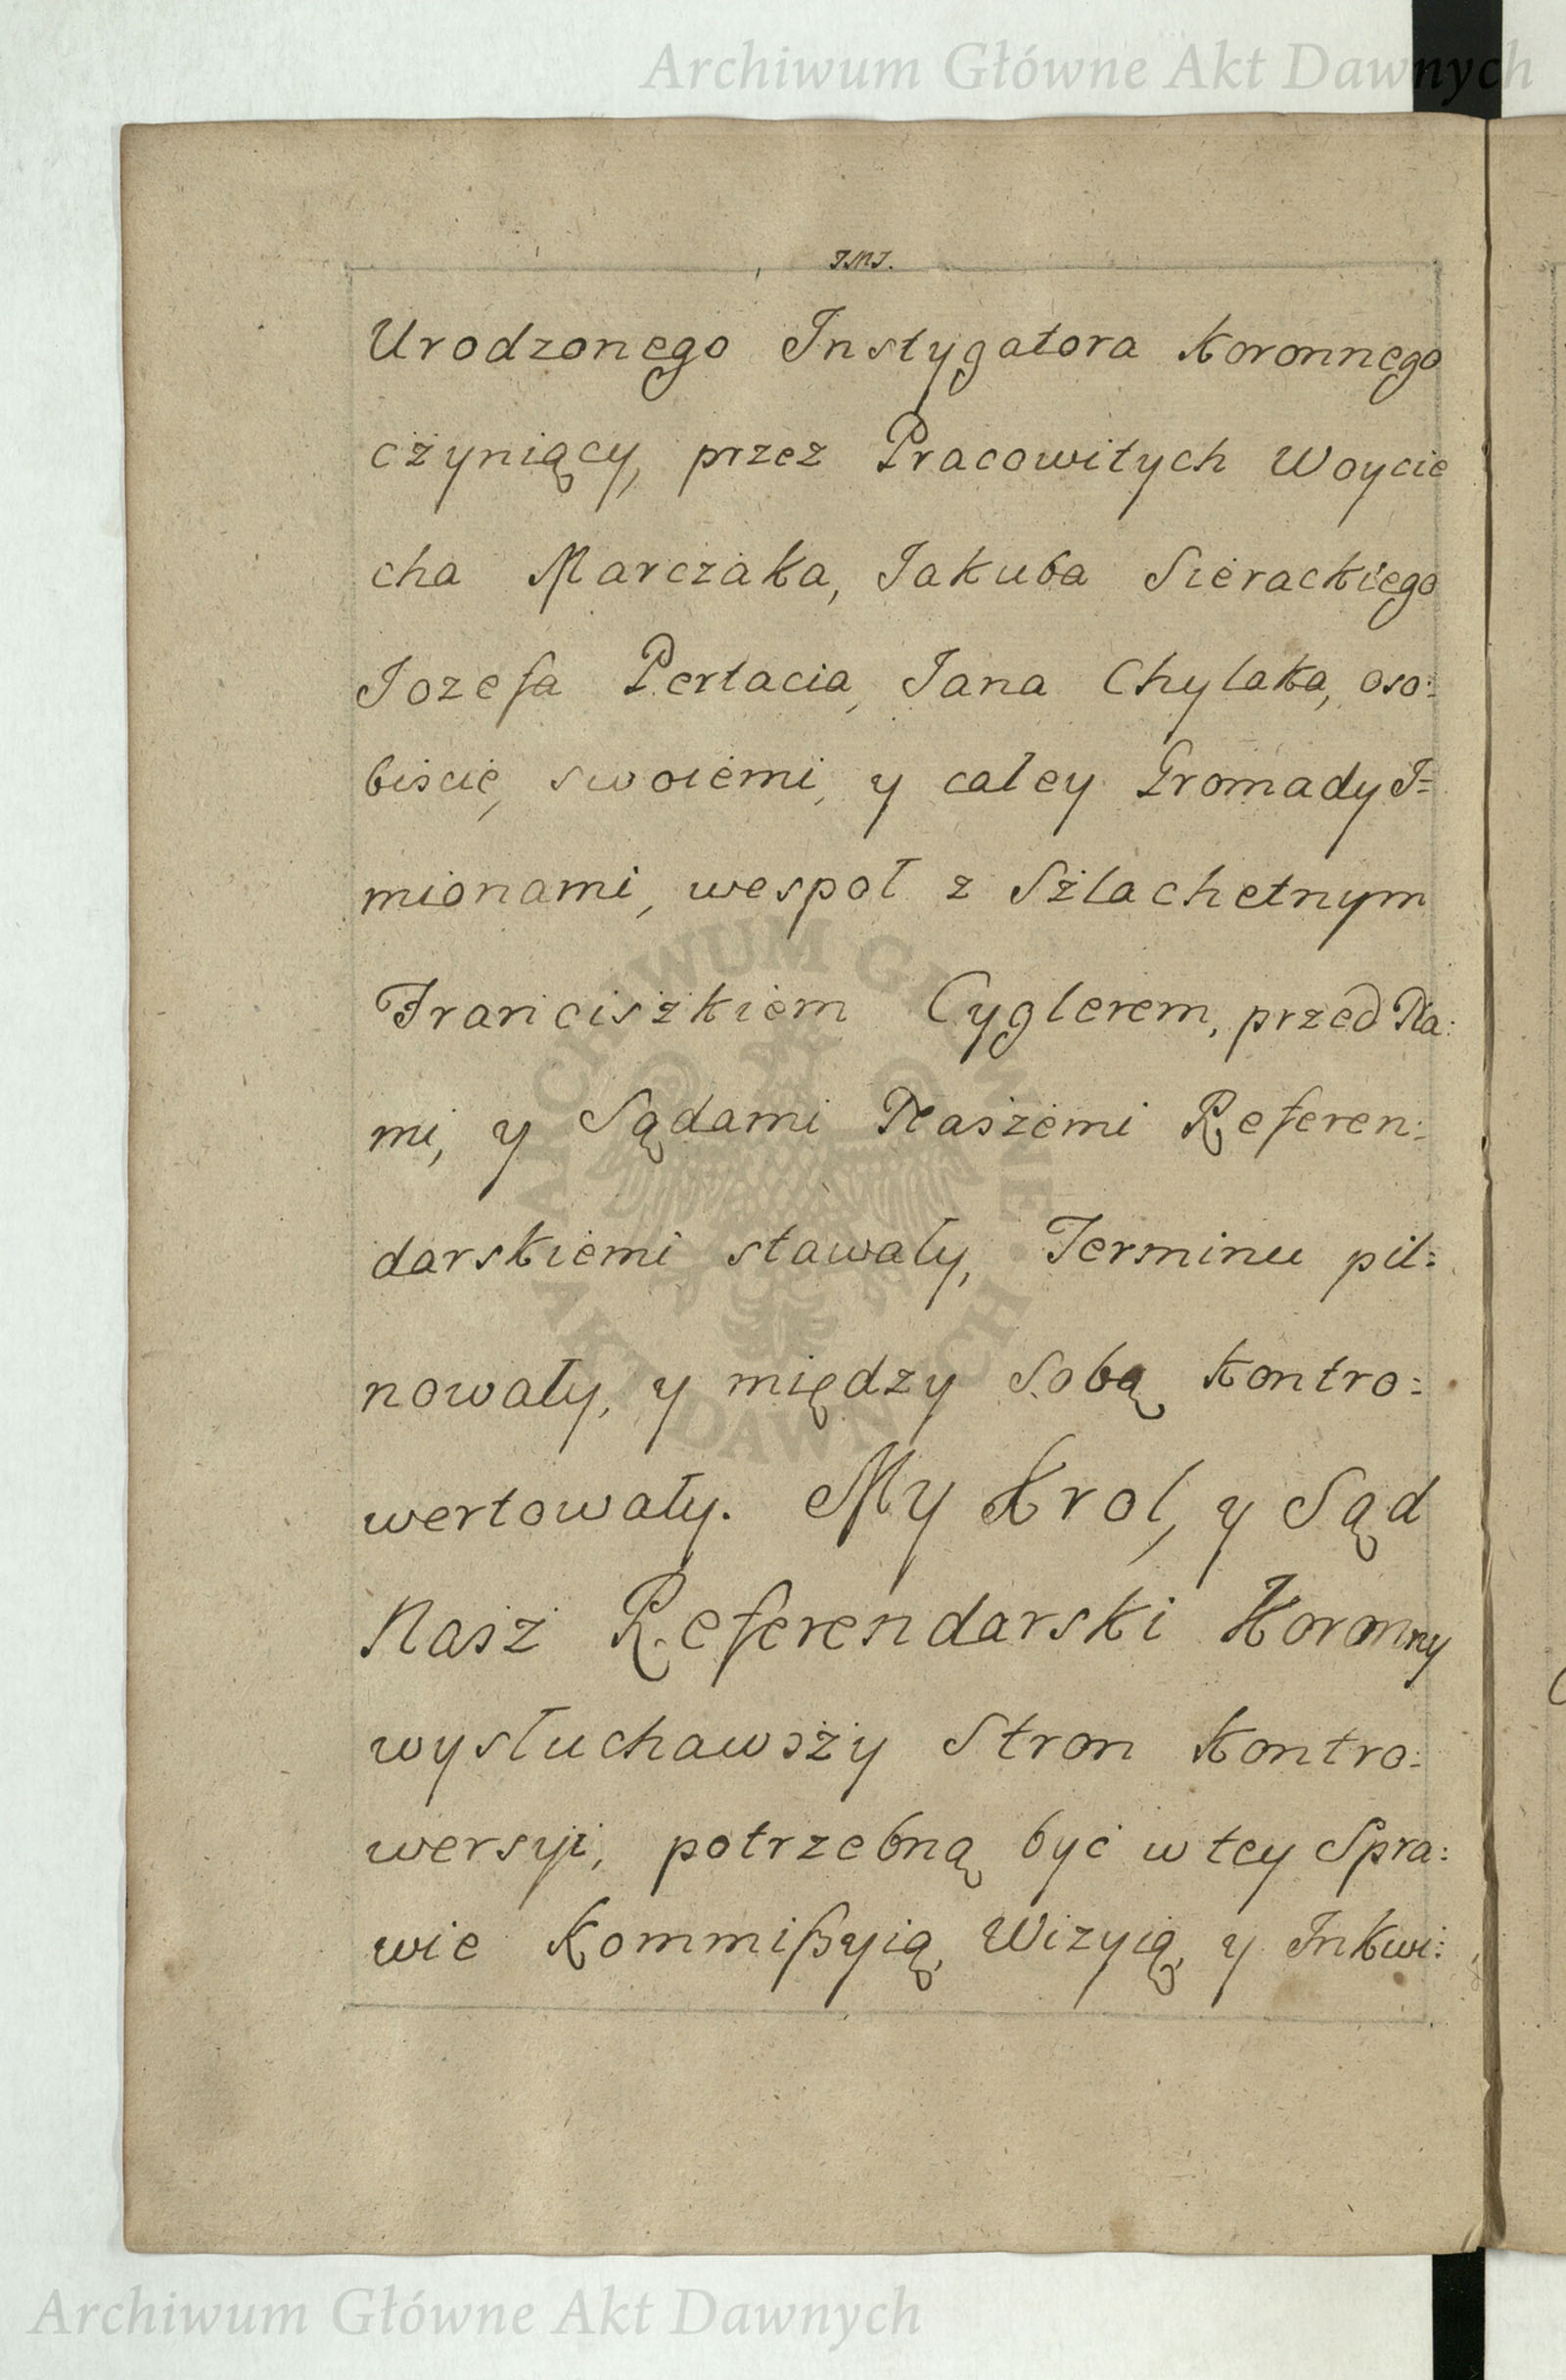 Archiwum Główne Akt Dawnych
JMJ.
Urodzonego Instygatora Koronnego
czyniący, przez Pracowitych Woycie
cha Marczaka, Jakuba Sierackiego
Jozefa Pertacia, Jana Chylaka, oso:
biście, swoiemi, y caley Gromady J=
mionami, wespoł z Szlachetnym
Franciszkiem Cyglerem, przed Na:
mi, y Sądami Naszemi Referen:
darskiemi stawały, Terminu pil:
nowały, y między Sobą Kontro:
wertowały. My Krol, y Sąd
Nasz Referendarski Koronny
wysłuchawszy Stron Kontro:
wersyi, potrzebną być w tey Spra:
wie Kommißyią, Wizyią, y Inkwi:
ARCHIWUM GŁÓWNE AKT DAWNYCH
Archiwum Główne Akt Dawnych